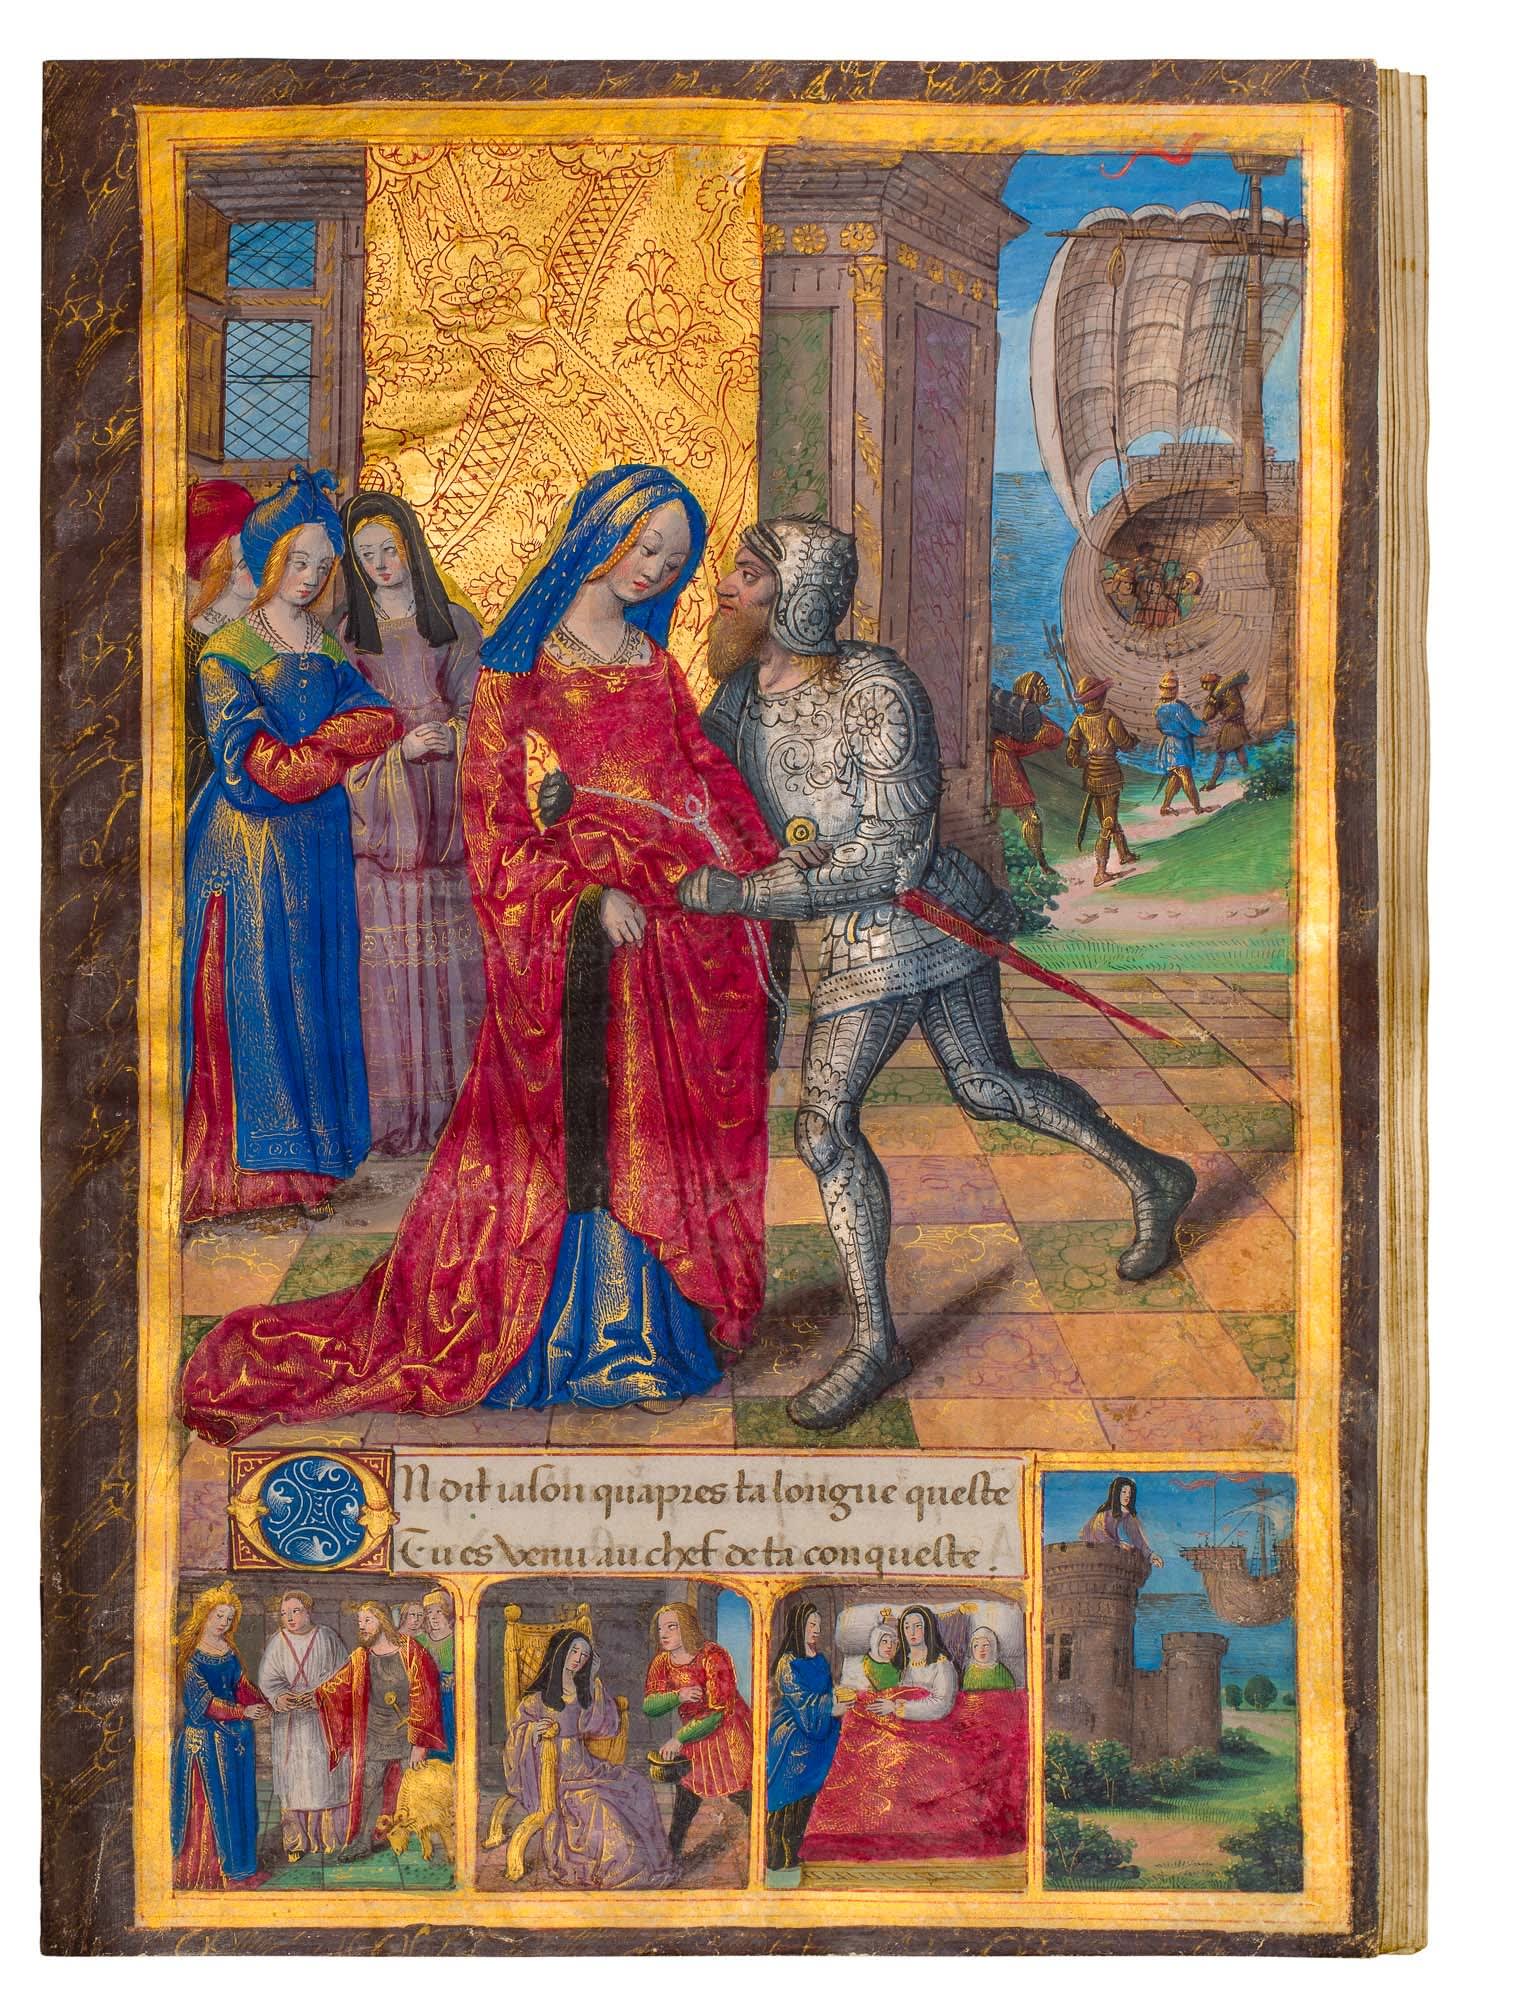 On dit iason quapres ta longue queste
Tu es venu au chef de ta conqueste.